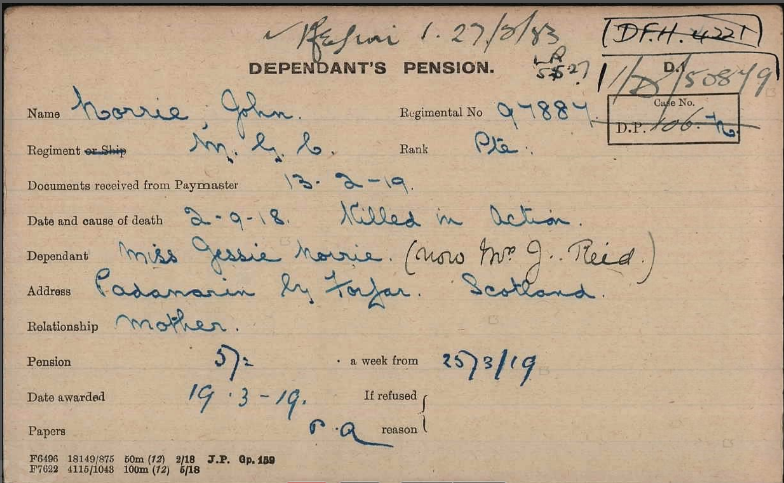 1. 27/3/83
D.F.H. 4221
DEPENDANT'S PENSION.
D.
1/D/50879
Name Norrie, John. Regimental No 97887
Case No.
D.P. 106. N.
Regiment or Ship M. G. C. Rank Pte.
Documents received from Paymaster 13-2-19.
Date and cause of death 2-9-18. Killed in Action.
Dependant Miss Jessie Norrie. (now Mrs J. Reid.)
Address Padanarin by Forfar. Scotland.
Relationship Mother.
Pension 5/= a week from 25/3/19
Date awarded 19.3-19. If refused
Papers P.A reason
F6496 18149/875 50m (12) 2/18 J.P. Gp. 159
F7622 4115/1043 100m (12) 5/18